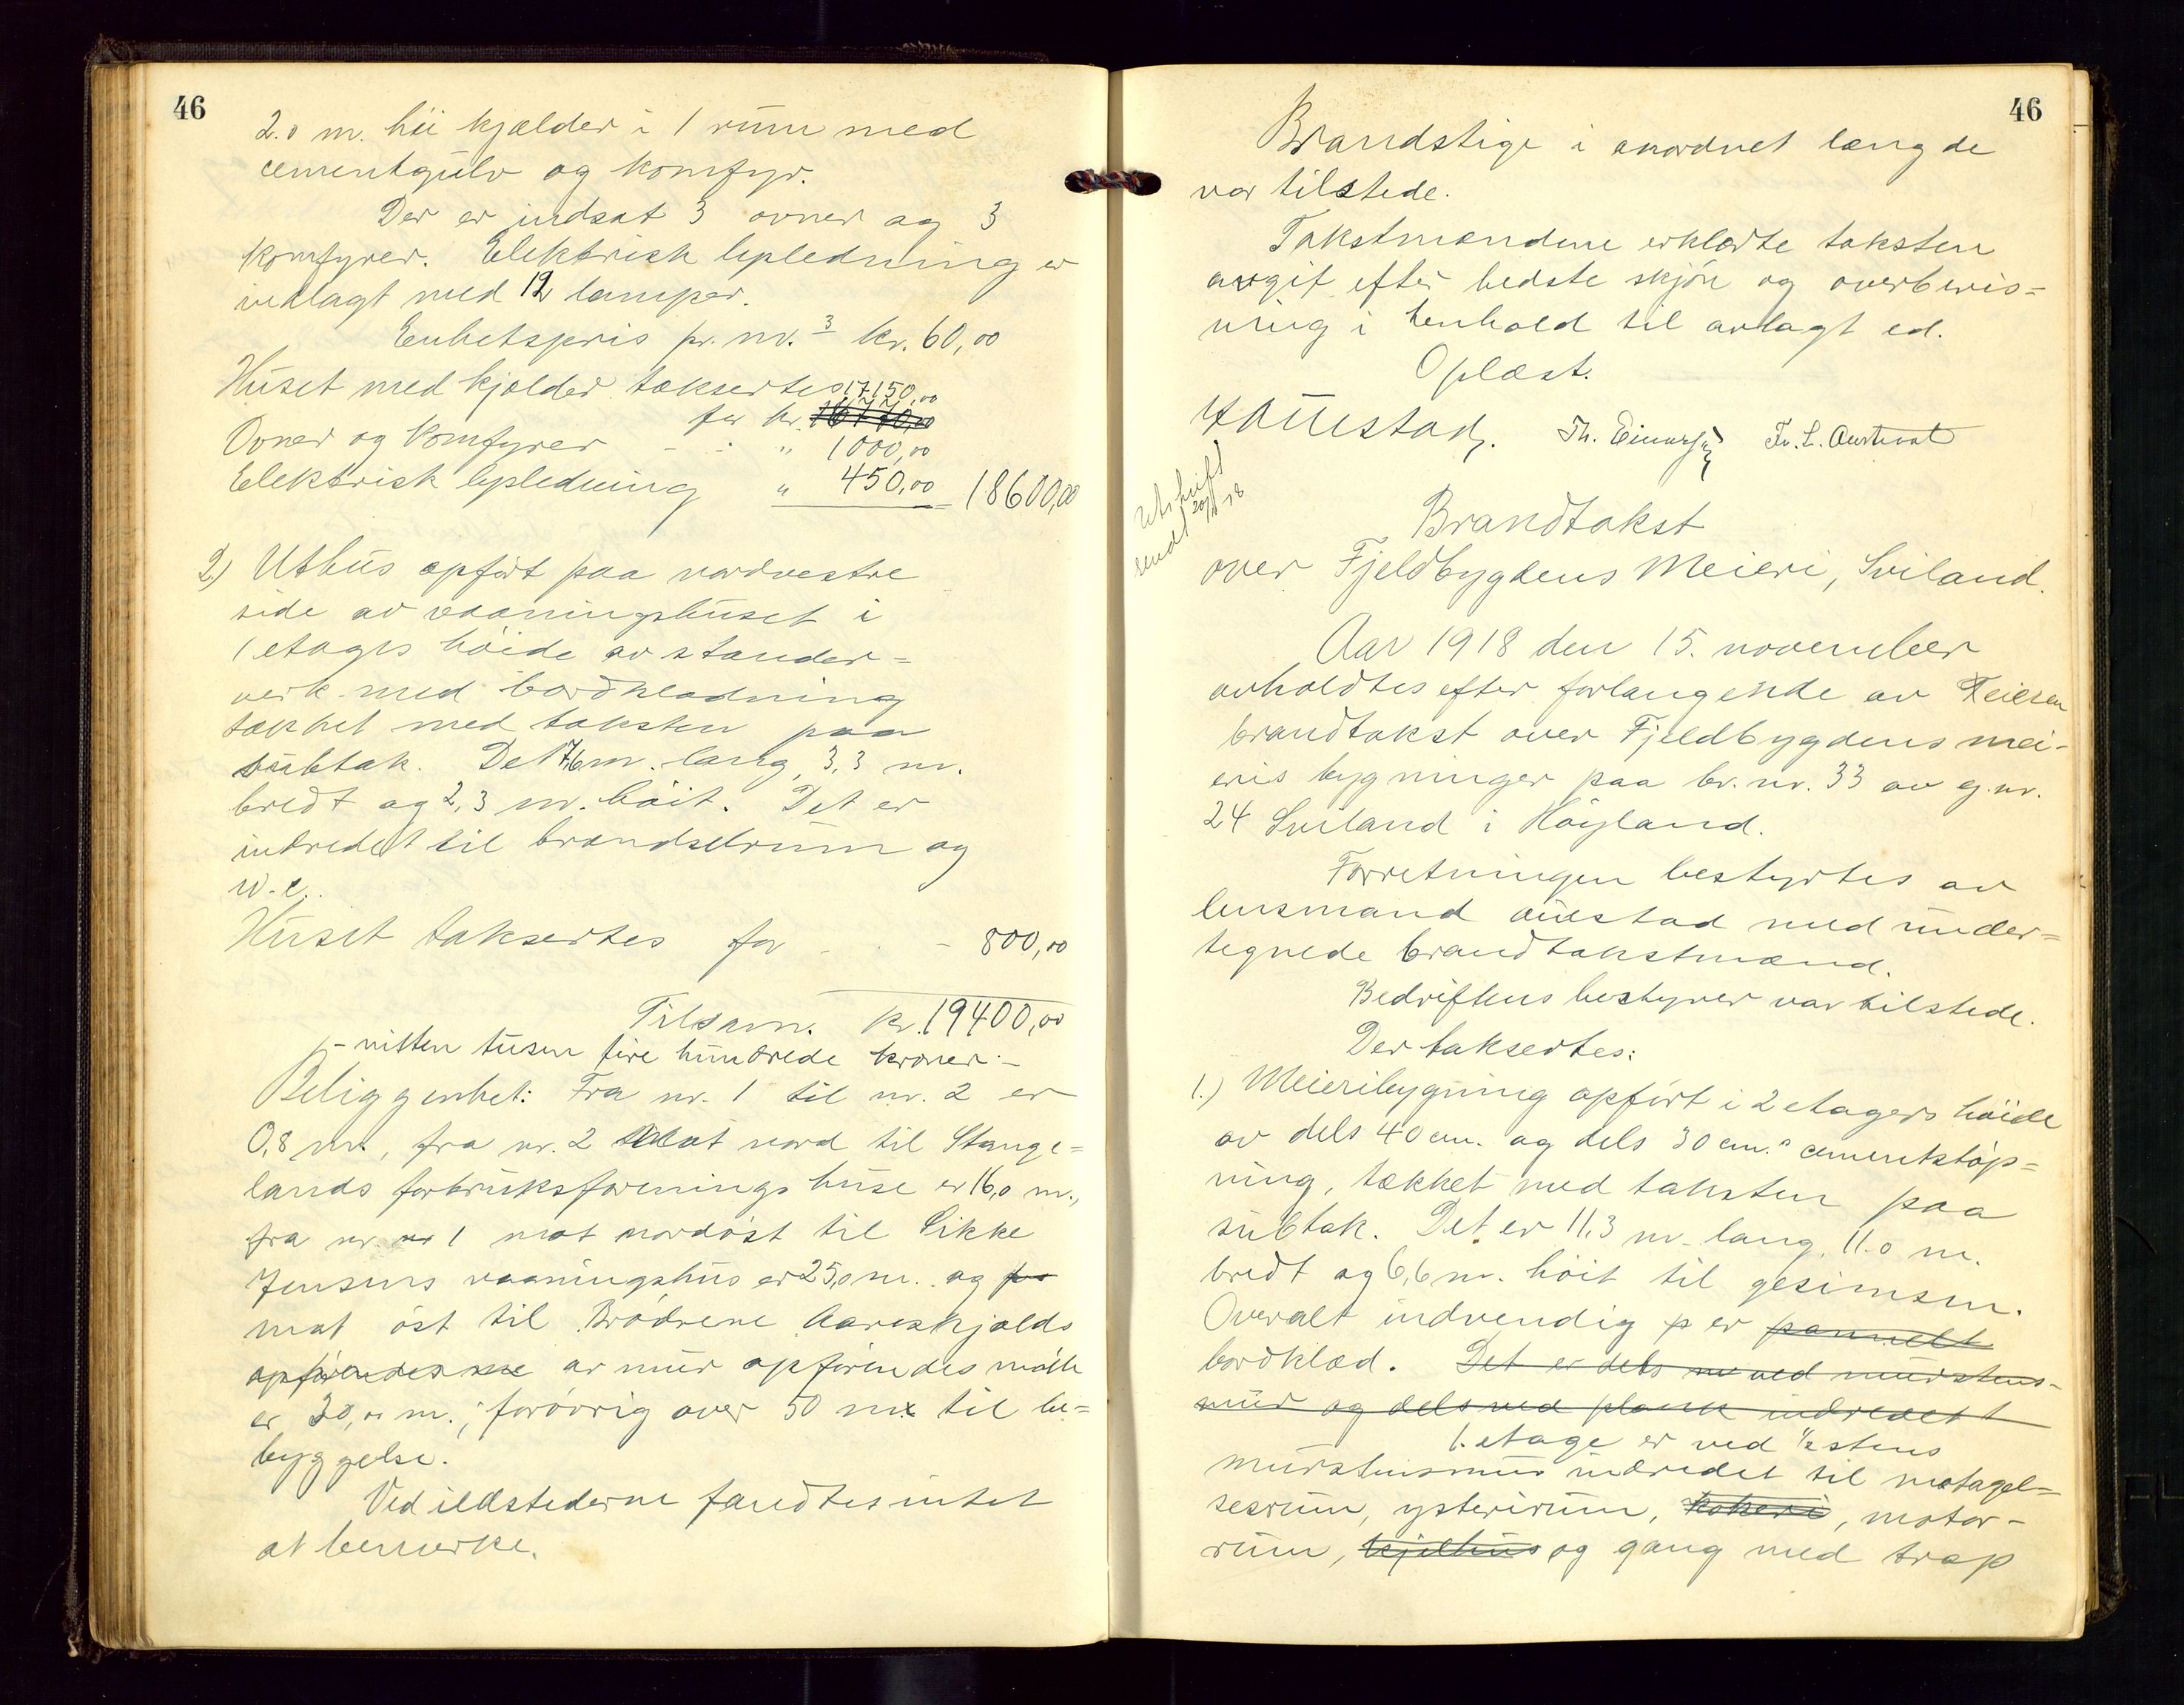 46
2.0 m. hüi kjælder i 1 rum med
cementgulv og komfyr.
Der er indsat 3 ovner og 3
komfyrer. Elektrisk lysledning er
indlagt med 12 lamper.
Enhetspris pr. m.³ kr. 60,00
Huset med kjælder taksertes 17150,00
for kr. 16770,00
Ovner og komfyrer - - " 1000,00
Elektrisk lysledning " 450,00 = 18600,00
2.) Uthus opført paa nordvestre
side av vaaningshuset i
1 etages höide av stander=
verk med bordklædning
tækket med taksten paa
subtak. Det 7,6 m. lang, 3,3 m.
bredt og 2,3 m. höit. Det er
indredet til brændselrum og
w.c.
Huset taksertes for - - 800,00
Tilsam. kr. 19400,00
- nitten tusen fire hundrede kroner -
Beliggenhet: Fra nr. 1 til nr. 2 er
0,8 m., fra nr. 2 mot nord til Stange=
lands forbruksforenings huse er 16,0 m.,
fra nr. 1 mot nordöst til Sikke
Jensens vaaningshus er 25,0 m. og fra
mot öst til Brödrene Aareskjolds
opförendes av mur opförendes mölle
er 30,0 m.; forövrig over 50 m. til be=
byggelse.
Ved ildstederne fandtes intet
at bemerke.
46
Brandstige i anordnet længde
var tilstede.
Takstmændene erklærte taksten
avgit efter bedste skjön og overbevis=
ning i henhold til avlagt ed.
Oplæst.
Aüestad. Th. Einarsen Fr. L. Austvoll
Utskrift
sendt 20/11-18
Brandtakst
over Fjeldbygdens Meieri, Sviland.
Aar 1918 den 15. november
avholdtes efter forlangende av eieren
brandtakst over Fjeldbygdens mei-
eris bygninger paa br. nr. 33 av g. nr.
24 Sviland i Höyland.
Forretningen bestyrtes av
lensmand Aüestad med under=
tegnede brandtakstmænd.
Bedriftens bestyrer var tilstede.
Der taksertes:
1.) Meieribygning opført i 2 etagers höide
av dels 40 cm. og dels 30 cm.s cementstöp=
ning, tækket med taksten paa
subtak. Det er 11,3 m. lang, 11.0 m.
bredt og 6,6 m. höit til gesimsen.
Overalt indvendig er pannelt
bordklæd. Det er dels ved murstens-
mur og dels ved plank indredet
1. etage er ved ½ stens
murstensmur indredet til motagel=
sesrum, ysterirum, kokeri, motor-
rum, kjelhus og gang med trap